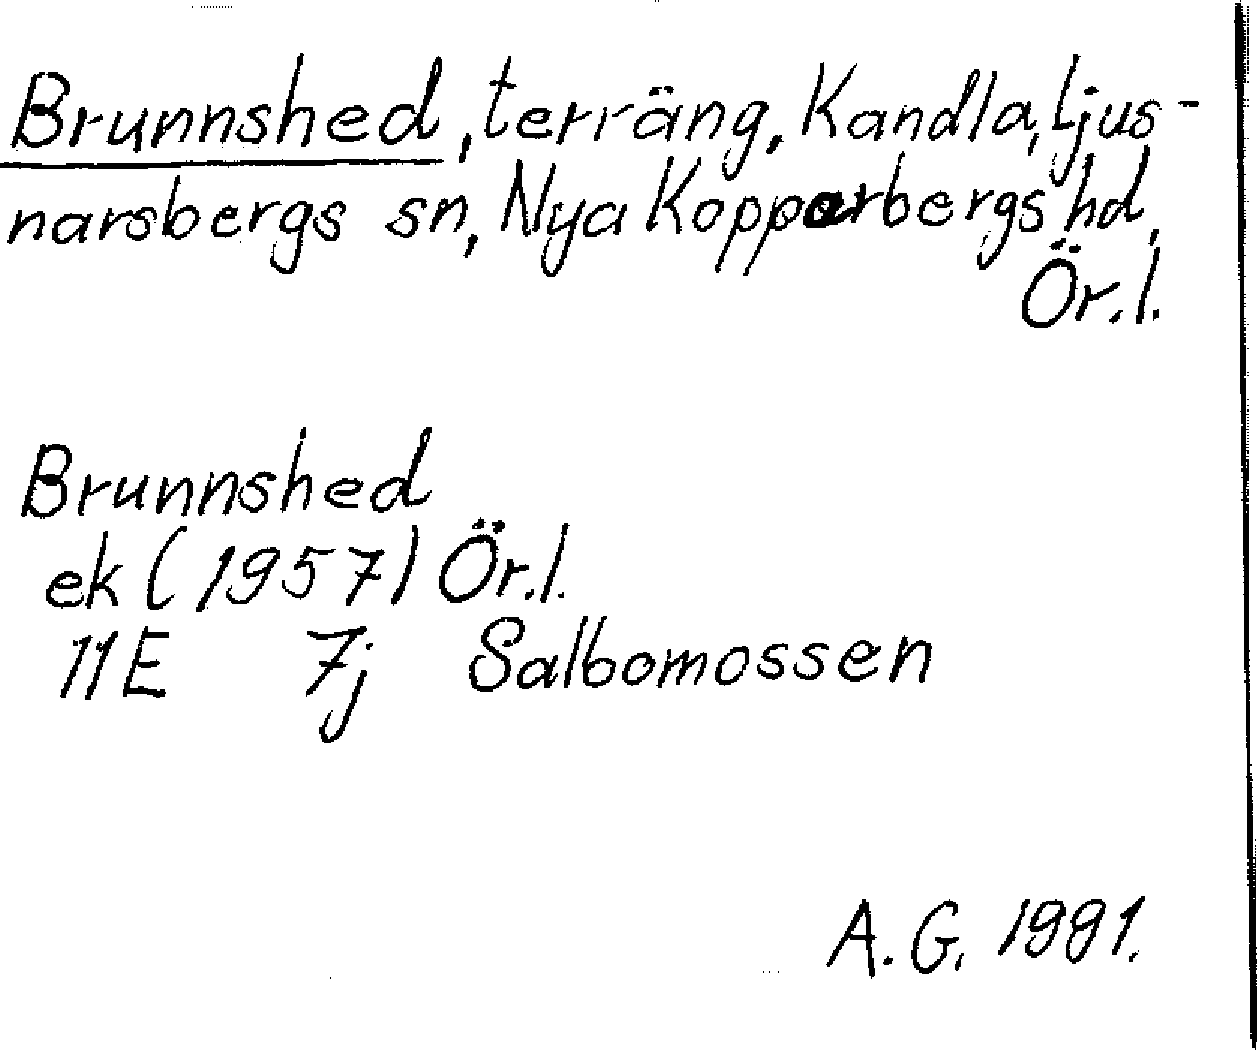 Brunnshed, terräng, Kandla, Ljus-
narsbergs sn, Nya Kopparbergs hd,
Ör.l.
Brunnshed
ek (1957) Ör.l.
11E 7j Salbomossen
A.G. 1991.